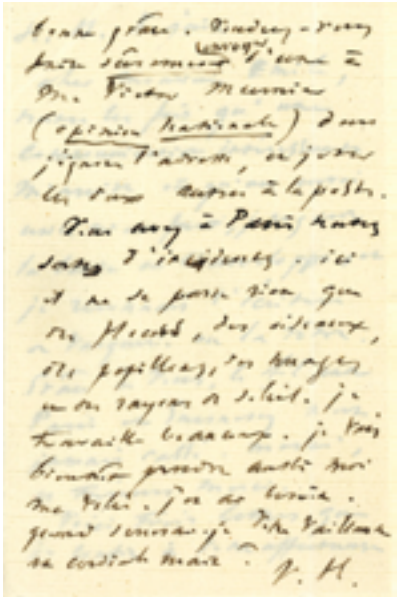 bonne grâce. Voudrez-vous
faire sûrement envoyer l'une à
M. Victor Meunier
(opinion nationale) dont
j'ignore l'adresse, et jeter
les deux autres à la poste.
Vous avez à Paris
d'incidents. ici
il ne se passe rien que
des fleurs, des oiseaux,
des papillons, des nuages
et des rayons de soleil. je
travaille beaucoup. je vais
bientôt prendre aussi moi
ma volée. j'en ai besoin.
quand serrerai-je votre vaillante
et cordiale main ?
V. H.